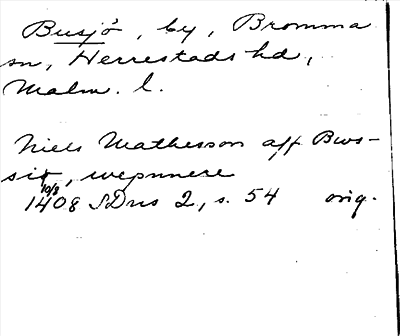 Busjö, by, Bromma
sn, Herrestads hd,
Malm. l.
Niels Mathesson aff Bws-
siø, wepnnere
10/8
1408 SDns 2, s. 54 orig.